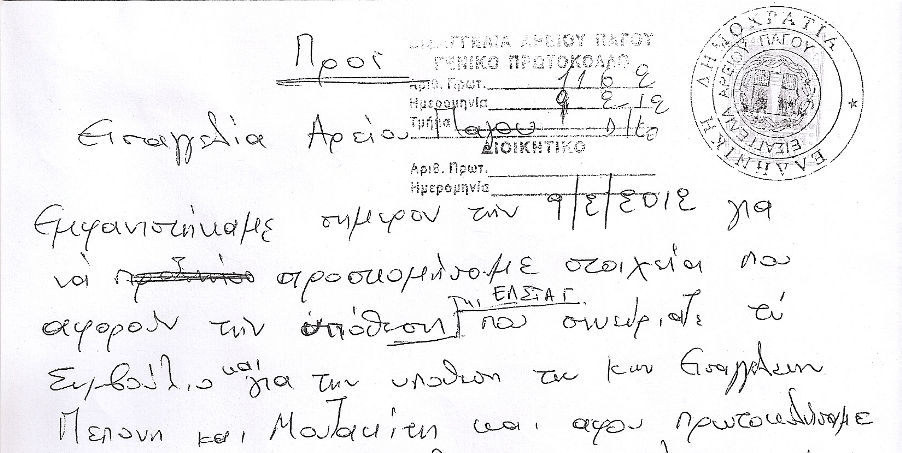 Προς
ΕΙΣΑΓΓΕΛΙΑ ΑΡΕΙΟΥ ΠΑΓΟΥ
ΓΕΝΙΚΟ ΠΡΩΤΟΚΟΛΛΟ
Αριθ. Πρωτ. 1162
Ημερομηνία 9-2-12
Τμήμα
ΔΙΟΙΚΗΤΙΚΟ
Αριθ. Πρωτ.
Ημερομηνία
ΕΛΛΗΝΙΚΗ ΔΗΜΟΚΡΑΤΙΑ *
ΕΙΣΑΓΓΕΛΙΑ ΑΡΕΙΟΥ ΠΑΓΟΥ
Εισαγγελία Αρείου Παγου
Εμφανιστήκαμε σημερον την 9/2/2012 για
νά προσκομήσομε στοιχεία που
αφορούν την υπόθεση της ΕΛΣΤΑΤ. που συνεδριαζε τό
Συμβούλιο και για την υποθεση των κων Εισαγγελεων
Πεπονη και Μουζακίτη και αφου πρωτοκολλησαμε